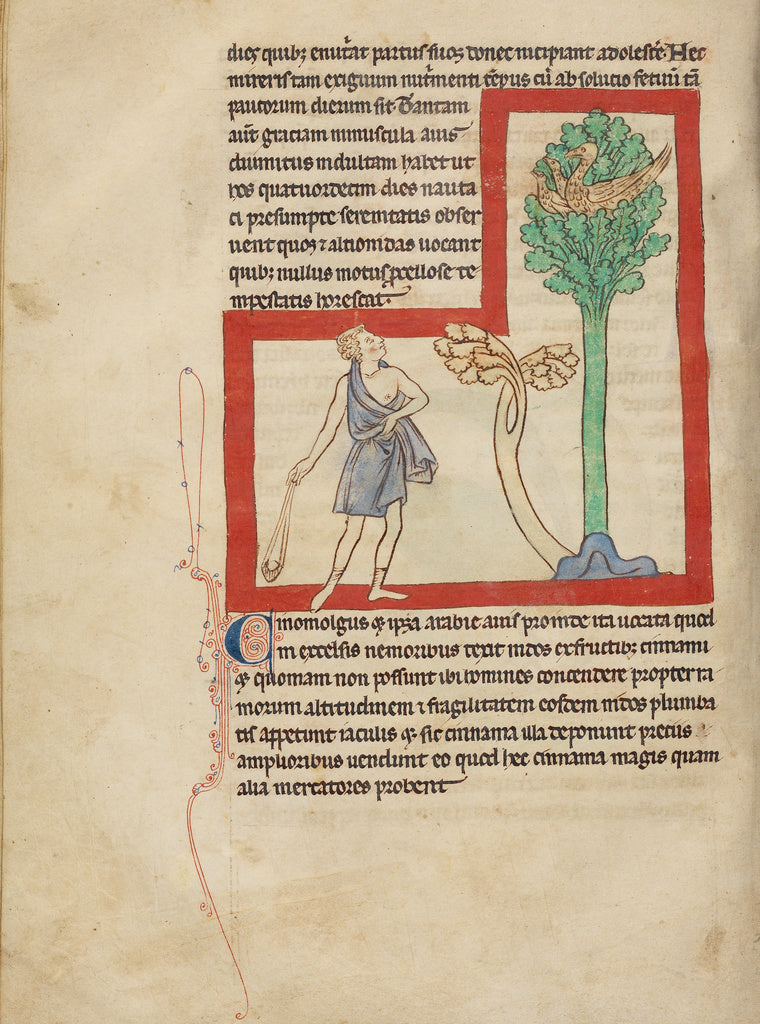 dies quibꝫ enut̾at partus suos donec incipiant adolescẽ. Hec
mireris tam exiguum nut̾menti tẽpus cũ absolucio fetuũ tã
paucorum dierum sit. Tantam
aut̃ graciam minuscula auis
diuinitus indultam habet ut
hos quatuordecim dies nauta
ci presumpte serenitatis obser
uent quos ⁊ altionidas uocant
quibꝫ nullus motus ꝓcellose te
mpestatis horescat.
Cinomolgus ⁊ ip̃a arabie auis proinde ita uocata quod
in excelsis nemoribus texit nidos ex fructibꝫ cinnami
⁊ quoniam non possunt ibi homines concendere propter ra
morum altitudinem ⁊ fragilitatem eosdem nidos plumba
tis appetunt iaculis ⁊ sic cinnama illa deponunt preciis
amplioribus uendunt eo quod hec cinnama magis quam
alia mercatores probent